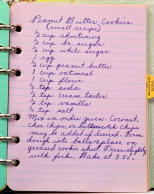 Peanut Butter Cookies
(small recipe)
½ cup shortening
½ cup br sugar
½ cup white sugar
1 egg
½ cup peanut butter
1 cup oatmeal
1 cup flour
½ tsp. soda
½ tsp. cream tarter
½ tsp. vanilla
½ tsp. salt
Mix in order given. Coconut,
Choc chips, or butterscotch chips
may be added if desired. Form
dough into balls & place on
greased cookie sheet. Press lightly
with fork. Bake at 350°.